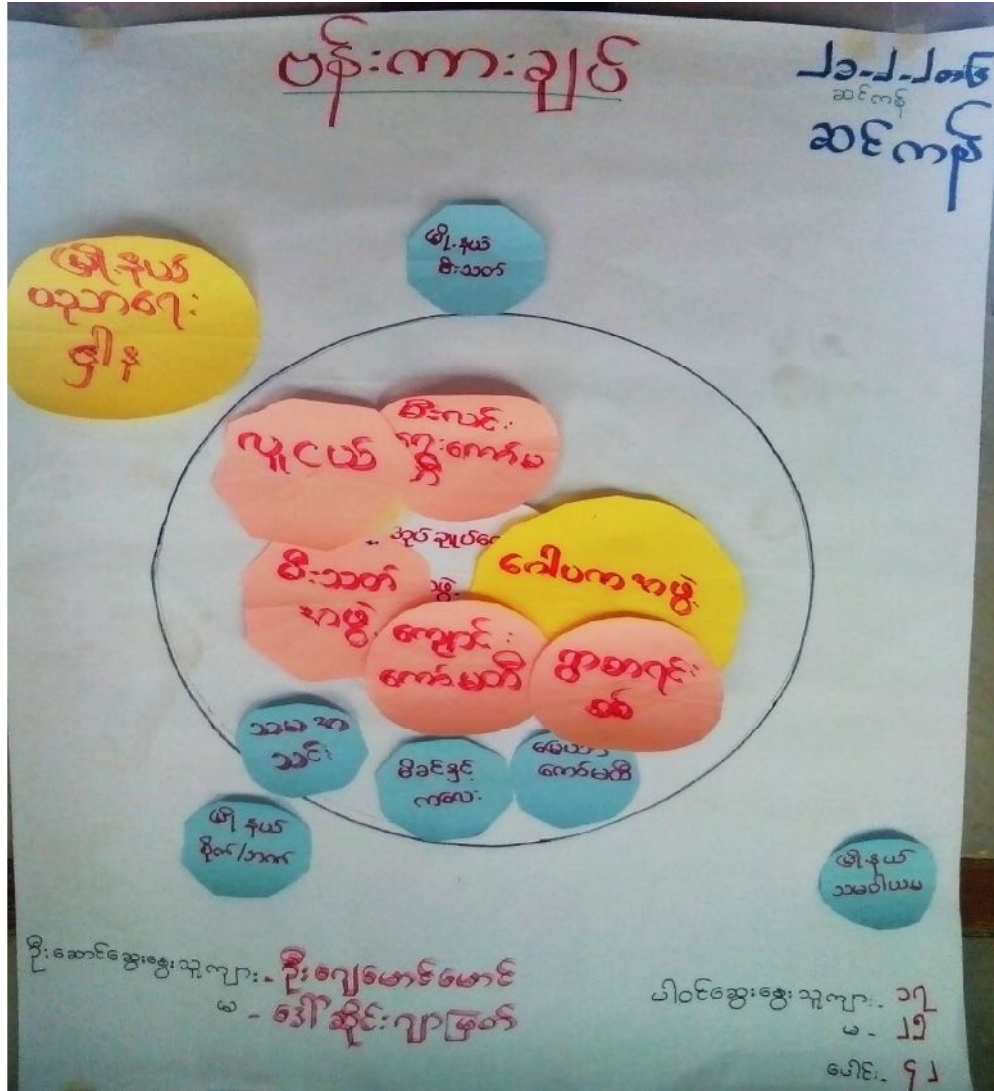 ဗန်းကားချပ်
ဆင်ကန်
ဆင်ကန်
မြို့နယ်
မီးသတ်
မြို့နယ်
ပညာရေး
ဌာန
လူငယ်
မီးလင်း
ရေးကော်မ
တီ
အုပ်ချုပ်ရေ
ဖွဲ့
ဂေါပကအဖွဲ့
မီးသတ်
အဖွဲ့
ကျောင်း
ကော်မတီ
ရွာစာရင်း
စစ်
သမအာ
သင်း
မိခင်နှင့်
ကလေး
ကော်မတီ
မြို့နယ်
စိုက်/ဘဏ်
မြို့နယ်
သမဝါယမ
ဦးဆောင်ဆွေးနွေးသူကျား- ဦးဂျေမောင်မောင်
မ - ဒေါ်ဆိုင်းဂျာမြတ်
ပါဝင်ဆွေးနွေးသူကျား- ၁၇
မ- ၂၅
ပေါင်း- ၄၂